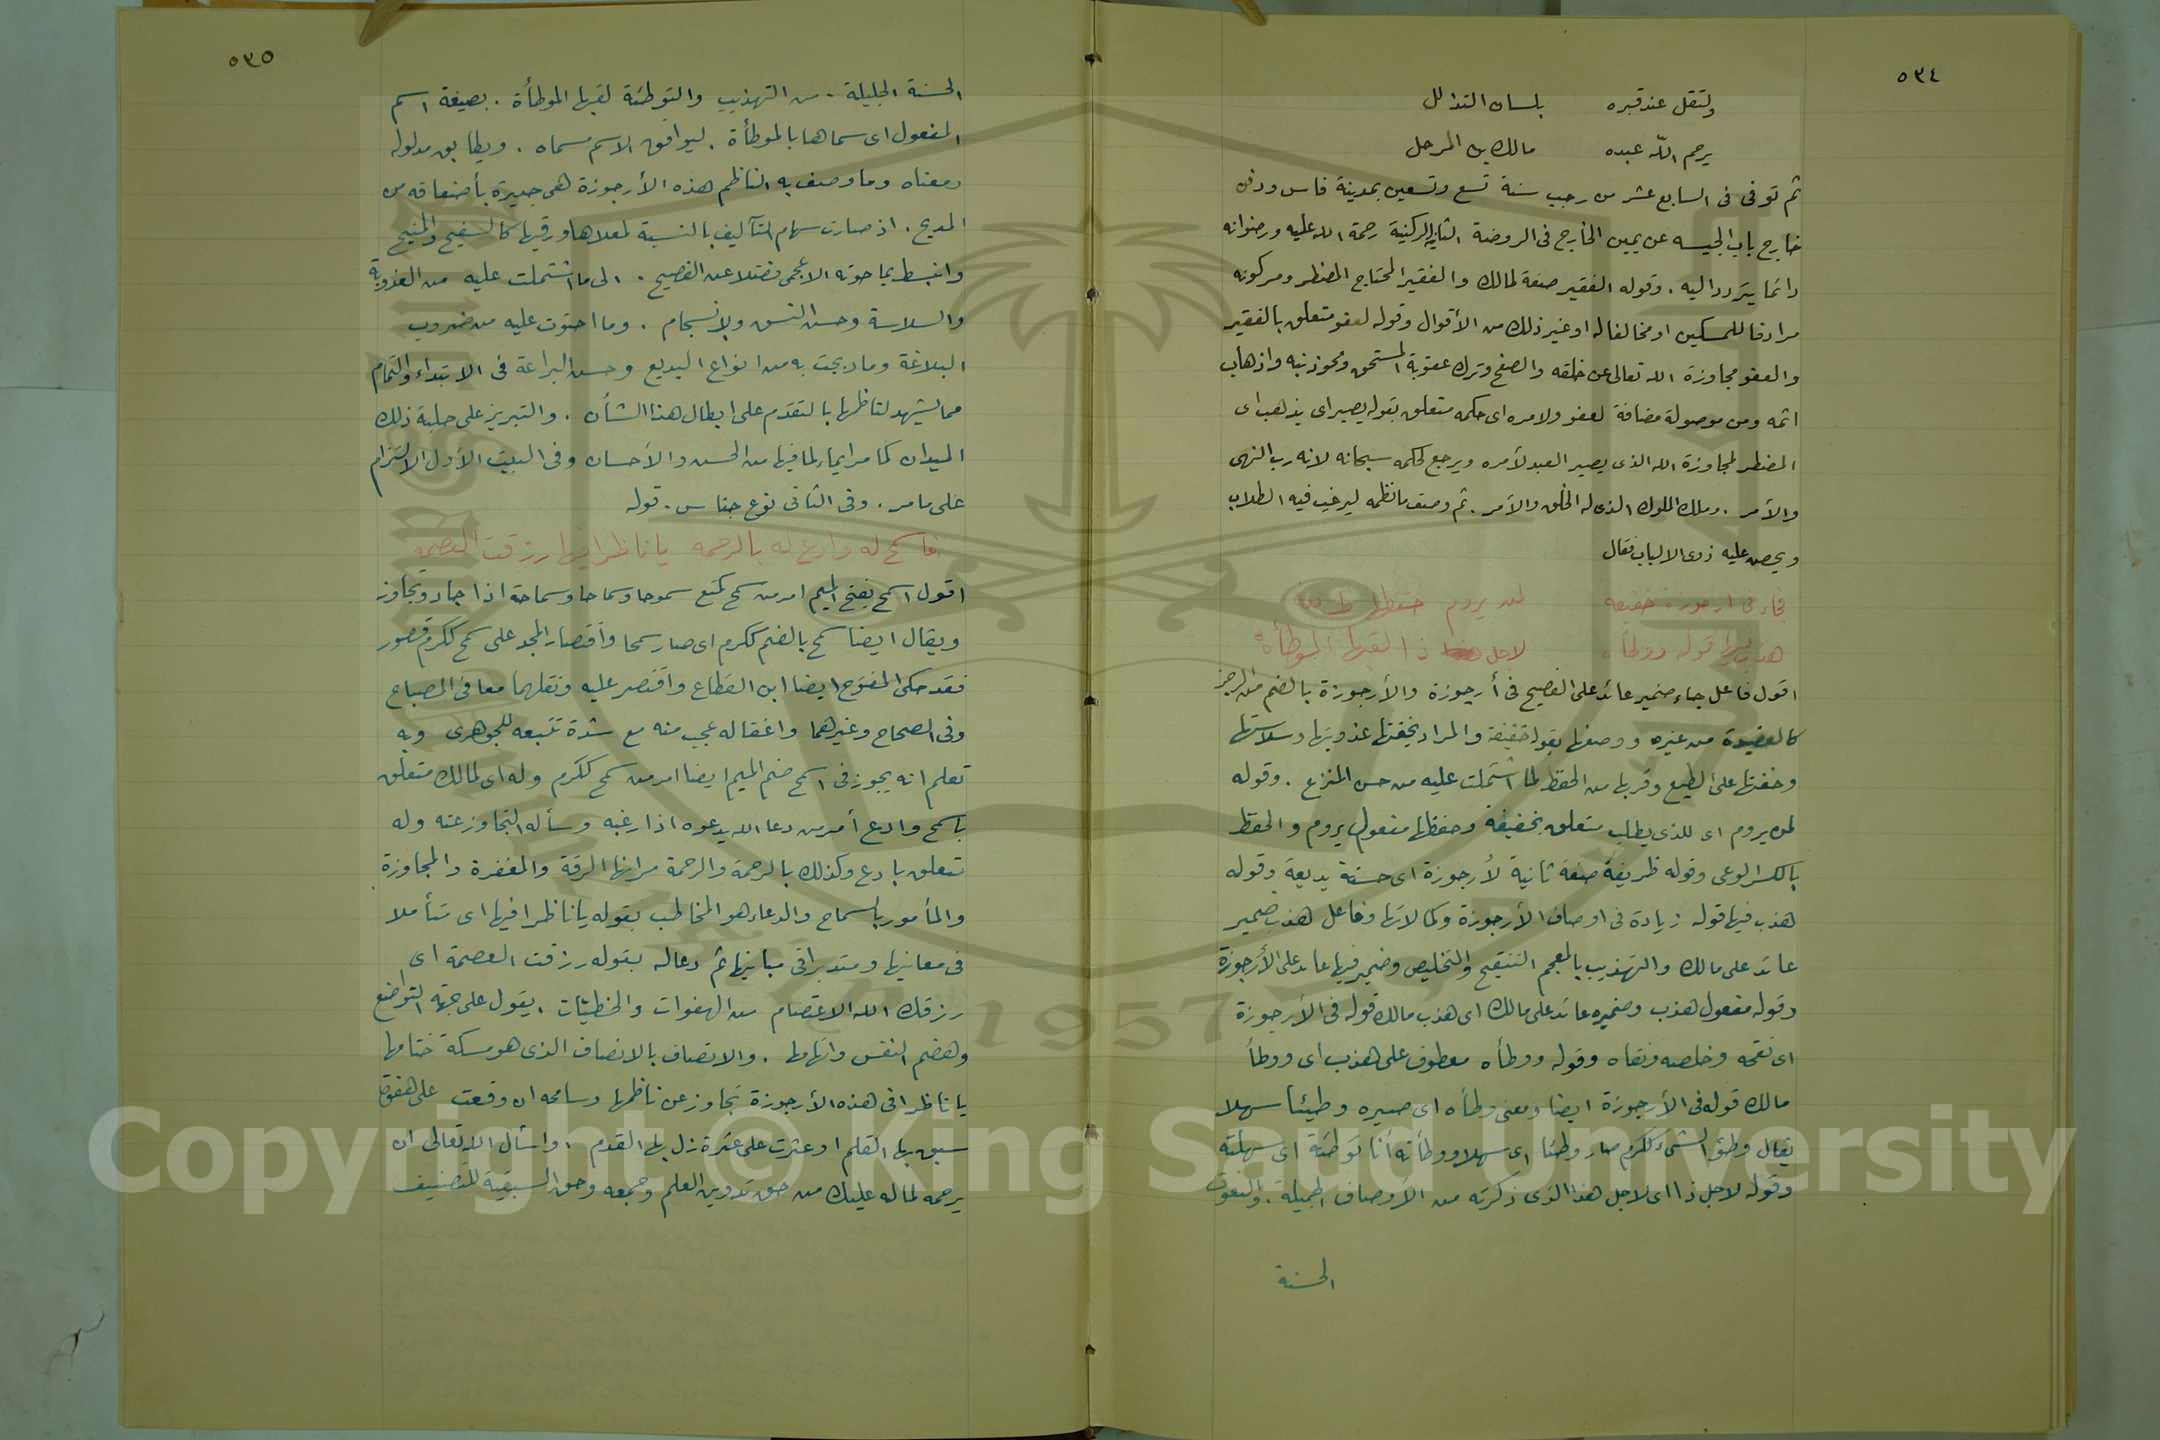 ٥٣٤
ولتقل عند قبره بلسان التذلل
يرحم الله عبده مالك بن المرحل
ثم توفى فى السابع عشر من رجب سنة تسع وتسعين بمدينة فاس ودفن
خارج باب الجيسه عن يمين الخارج فى الروضة الركنية رحمة الله عليه ورضوانه
دائما يتردد اليه . وقوله الفقير صفة لمالك والفقير المحتاج المضطر ومر كونه
مرادفا للمسكين او مخالفا له او غير ذلك من الأقوال وقوله لعفو متعلق بالفقير
والعفو مجاوزة الله تعالى عن خلقه والصفح وترك عقوبة المستحق ومحو ذنبه واذهاب
اثمه ومن موصولة مضافة لعفو ولامره اى حكمه متعلق بقوله يصير اى يذهب اى
المضطر لمجاوزة الله الذى يصير العبد لأمره ويرجع لحكمه سبحانه لانه رب النهى
والأمر . وملك الملوك الذى له الخلق والأمر . ثم وصف ما نظمه ليرغب فيه الطلاب
ويحض عليه ذوى الالباب فقال
فجاء فى ارجوزة خفيفه لمن يروم حفظها ظريفه
هذب فيها قوله ووطأه لاجل ذا لقبها الموطأه
اقول فاعل جاء ضمير عائد على الفصيح فى أرجوزة والأرجوزة بالضم من الرجز
كالقصيدة من غيره ووصفها بقوله خفيفة والمراد بخفتها عذوبتها وسلاستها
وخفتها على الطبع وقربها من الحفظ لما اشتملت عليه من حسن المنزع . وقوله
لمن يروم اى للذى يطلب متعلق بخفيفة وحفظها مفعول يروم والحفظ
بالكسر الوعى وقوله ظريفة صفة ثانية لأرجوزة اى حسنة بديعة وقوله
هذب فيها قوله زيادة فى اوصاف الأرجوزة وكمالاتها وفاعل هذب ضمير
عائد على مالك والتهذيب بالمعجم التنقيح والتخليص وضمير فيها عائد على الأرجوزة
وقوله مفعول هذب وضميره عائد على مالك اى هذب مالك قوله فى الأرجوزة
اى نقحه وخلصه ونقاه وقوله ووطأه معطوف على هذب اى ووطأ
مالك قوله فى الأرجوزة ايضا ومعنى وطأه اى صيره وطيئا سهلا
يقال وطؤ الشىء ككرم صار وطيئا اى سهلا ووطأته أنا توطئة اى سهلته
وقوله لاجل ذا اى لاجل هذا الذى ذكرته من الأوصاف الجميلة . والنعوت
الحسنة
٥٣٥
الحسنة الجليلة . من التهذيب والتوطئة لقبها الموطأة . بصيغة اسم
المفعول اى سماها بالموطأة . ليوافق الاسم مسماه . ويطابق مدلوله
معناه وما وصف به الناظم هذه الأرجوزة هى جديرة بأضعافه من
المديح . اذ صارت سهام التآليف بالنسبة لمعلاها ورقيبها كالسفيح والمنيح
واغتبط بما حوته الاعجمى فضلا عن الفصيح . الى ما اشتملت عليه من العذوبة
والسلاسة وحسن النسق والانسجام . وما احتوت عليه من ضروب
البلاغة وما دبجت به من انواع البديع وحسن البراعة فى الابتداء والتمام
مما يشهد لناظمها بالتقدم على ابطال هذا الشأن . والتبريز على حلبة ذلك
الميدان كما مر ايماء لما فيها من الحسن والأحسان وفى البيت الأول الالتزام
على ما مر . وفى الثانى نوع جناس . قوله
فاسمح له وادع له بالرحمه يا ناظرا فيها رزقت العصمه
اقول اسمح بفتح الميم امر من سمح كمنع سموحا وسماحا وسماحة اذا جاد وتجاوز
ويقال ايضا سمح بالضم ككرم اى صار سمحا واقتصار المجد على سمح ككرم قصور
فقد حكى المفتوح ايضا ابن القطاع واقتصر عليه ونقلهما معا فى المصباح
وفى الصحاح وغيرهما واغفاله عجب منه مع شدة تتبعه للجوهرى وبه
تعلم انه يجوز فى اسمح ضم الميم ايضا امر من سمح ككرم وله اى لمالك متعلق
باسمح وادع أمر من دعا الله يدعوه اذا رغبه وسأله التجاوز عنه وله
متعلق بادع وكذلك بالرحمة والرحمة مر انها الرقة والمغفرة والمجاوزة
والمأمور بالسماح والدعاء هو المخاطب بقوله يا ناظرا فيها اى متأملا
فى معانيها ومتدبرا فى مبانيها ثم دعا له بقوله رزقت العصمة اى
رزقك الله الاعتصام من الهفوات والخطيئات . يقول على جهة التواضع
وهضم النفس واتهامها . والاتصاف بالانصاف الذى هو مسكة ختامها
يا ناظرا فى هذه الأرجوزة تجاوز عن ناظمها وسامحه ان وقعت على هفوة
سبق بها القلم او عثرت على عثرة زل بها القدم . واسأل الله تعالى ان
يرحمه لما له عليك من حق تدوين العلم وجمعه وحق السبقية للتصنيف
1957
Copyright © King Saud University